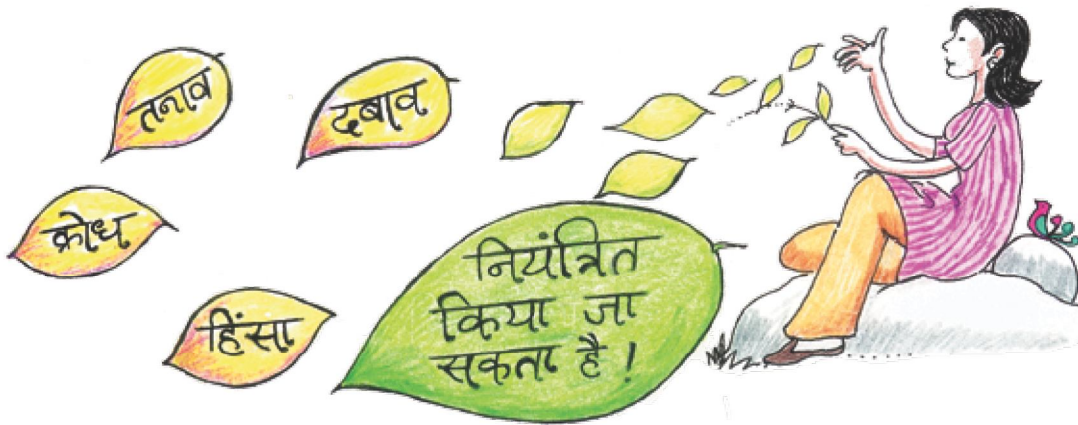 तनाव
दबाव
क्रोध
हिंसा
नियंत्रित
किया जा
सकता है!